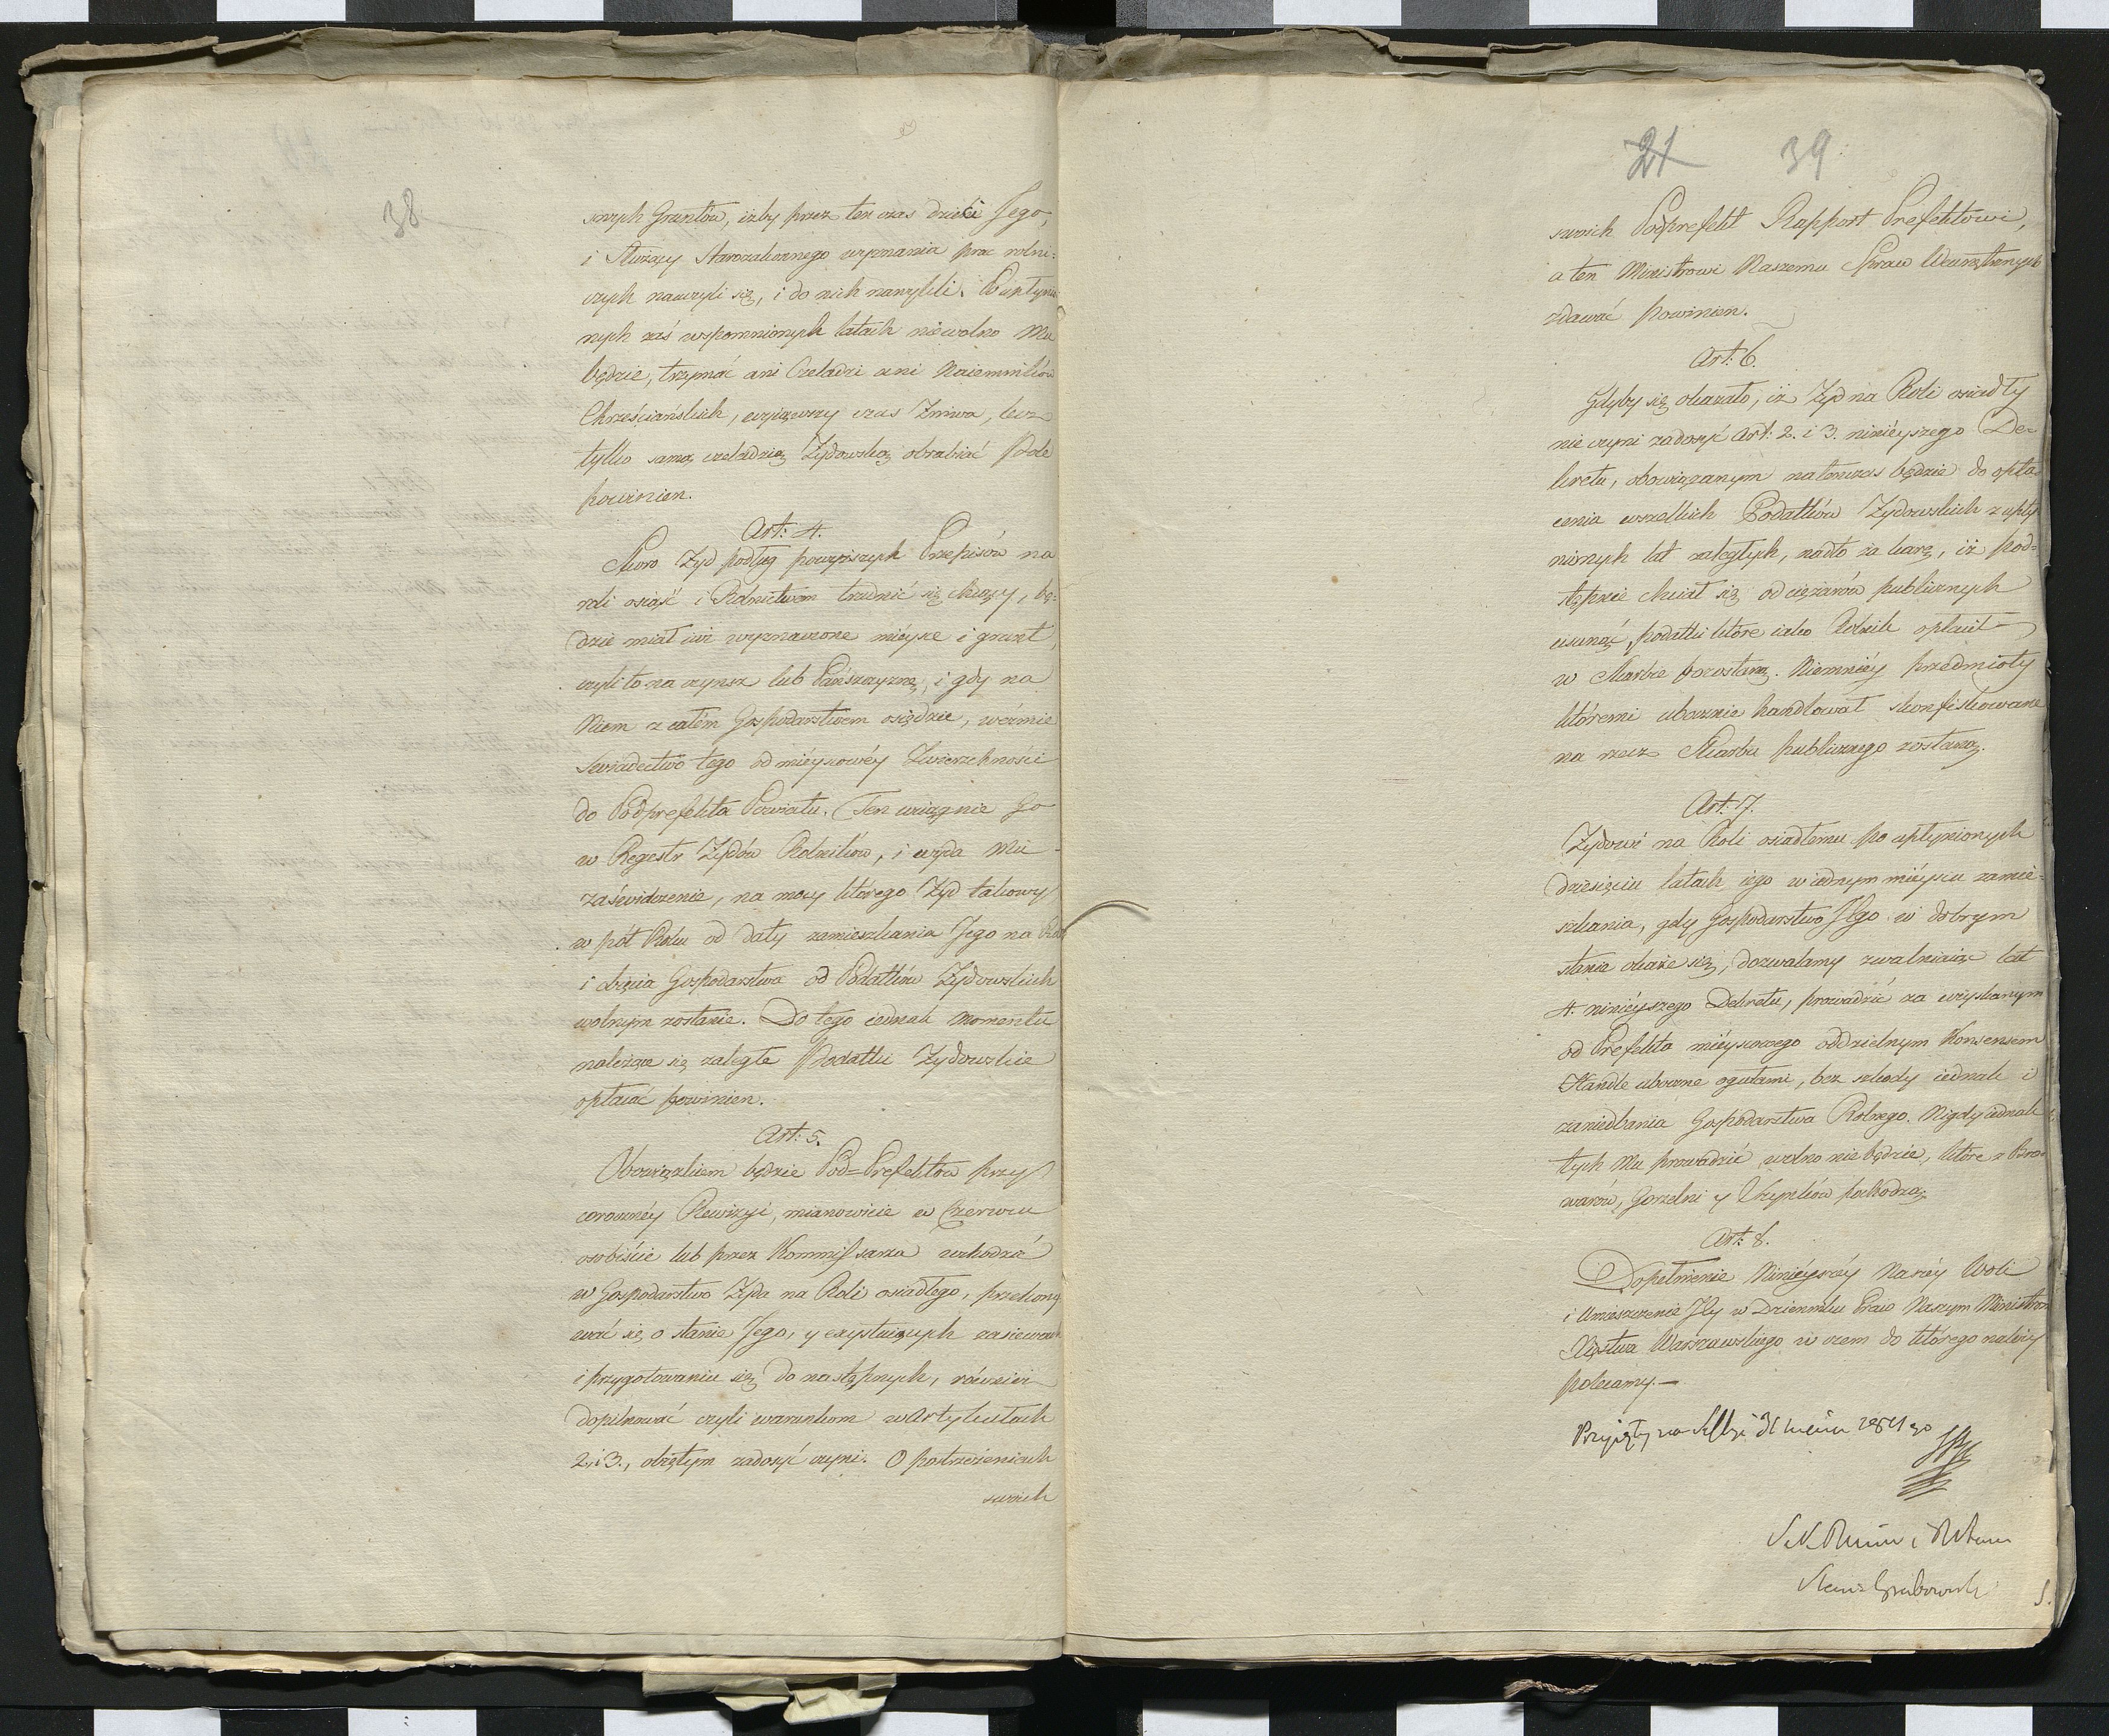 38.
snych Gruntów, iżby przez ten czas dzieci Jego,
i Służący Starozakonnego wyznania prac rolni-
czych nauczyli się, i do nich nawykli. Po upłynio-
nych zaś wspomnionych latach niewolno Mu
będzie, trzymać ani Czeladzi ani Naiemników
Chrześciańskich, wyiąwszy czas Żniwa, lecz
tylko samą czeladzią Żydowską obrabiać Pole
powinien.
Art: 4.
Skoro Żyd podług powyższych Przepisów na
roli osiąść i Rolnictwem trudnić się chcący, bę-
dzie miał iuż wyznaczone mieysce i grunt,
czyli to na czynsz lub Pańszczyznę, i gdy na
Niem z całém Gospodarstwem osiędzie, weźmie
Świadectwo tego od mieyscowéy Zwierzchności
do Podprefekta Powiatu. Ten wciągnie Go
w Regestr Żydów Rolników, i wyda Mu
zaświadczenie, na mocy którego Żyd takowy
w pół Roku od daty zamieszkania Jego na Roli
i objęcia Gospodarstwa od Podatków Żydowskich
wolnym zostanie. Do tego iednak momentu
należące się zaległe Podatki Żydowskie
opłacać powinien.
Art: 5.
Obowiązkiem będzie Pod-Prefektów przy
coroczney Rewizyi, mianowicie w Czerwcu
osobiście lub przez Kommissarza wchodzić
w Gospodarstwo Żyda na Roli osiadłego, przekony-
wać się o stanie Jego, y exystuiących zasiewach
i przygotowaniu się do następnych, również
dopilnować czyli warunkom w Artykułach
2. i 3., objętym zadosyć czyni. O postrzeżeniach
swoich
21 39
swoich Podprefekt Rapport Prefektowi,
a ten Ministrowi Naszemu Spraw Wewnętrznych
zdawać powinien.
Art: 6.
Gdyby się okazało, iż Żyd na Roli osiadły
nie czyni zadosyć Art: 2. i 3. ninieyszego De-
kretu, obowiązanym natenczas będzie do opła-
cenia wszelkich Podatków Żydowskich z upły-
nionych lat zaległych, nadto za karę, iż pod-
stępnie chciał się od ciężarów publicznych
usunąć, podatki które iako Rolnik opłacił
w Skarbie pozostaną. Niemniéy przedmioty
któremi ubocznie handlował skonfiskowane
na rzecz Skarbu publicznego zostaną.
Art: 7.
Żydowi na Roli osiadłemu po upłynionych
dziesięciu latach iego w iednym mieyscu zamie-
szkania, gdy Gospodarstwo Jego w dobrym
stanie okaże się, dozwalamy zwalniaiąc Art
4. ninieyszego Dekretu, prowadzić za uzyskanym
od Prefekta mieyscowego oddzielnym Konsensem
Handle uboczne ogułami, bez szkody iednak i
zaniedbania Gospodarstwa Rolnego. Nigdy iednak
tych Mu prowadzić wolno nie będzie, które z Bro-
warów, Gorzelni y Szynków pochodzą.
Art: 8.
Dopełnienie Ninieyszéy Naszéy Woli
i Umieszczenie Jéy w Dzienniku Praw Naszym Ministrom
Xięstwa Warszawskiego w czem do którego należy
polecamy.—
Przyięty na Sessyi 31